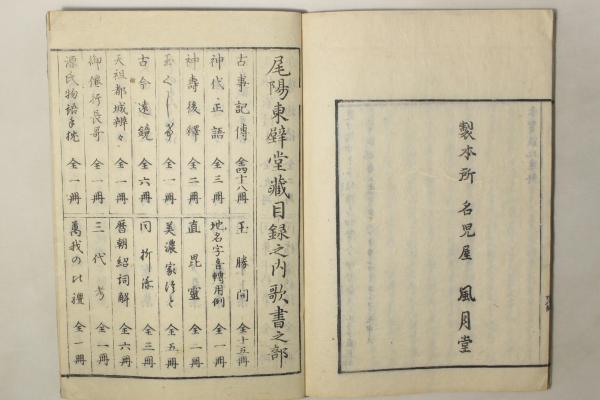 製本所 名児屋 風月堂
尾陽東壁堂藏目録之内歌書之部
古事記傳 全四十八冊
玉勝間 全十五冊
神代正語 全三冊
地名字音轉用例 全一冊
神壽後釋 全二冊
直毘靈 全一冊
玉くしげ 全一冊
美濃家づと 全五冊
古今遠鏡 全六冊
同折添 全三冊
天祖都城辨々 全一冊
歴朝紹詞解 全六冊
御僊行長哥 全一冊
三代考 全一冊
源氏物語手枕 全一冊
萬我の比禮 全一冊